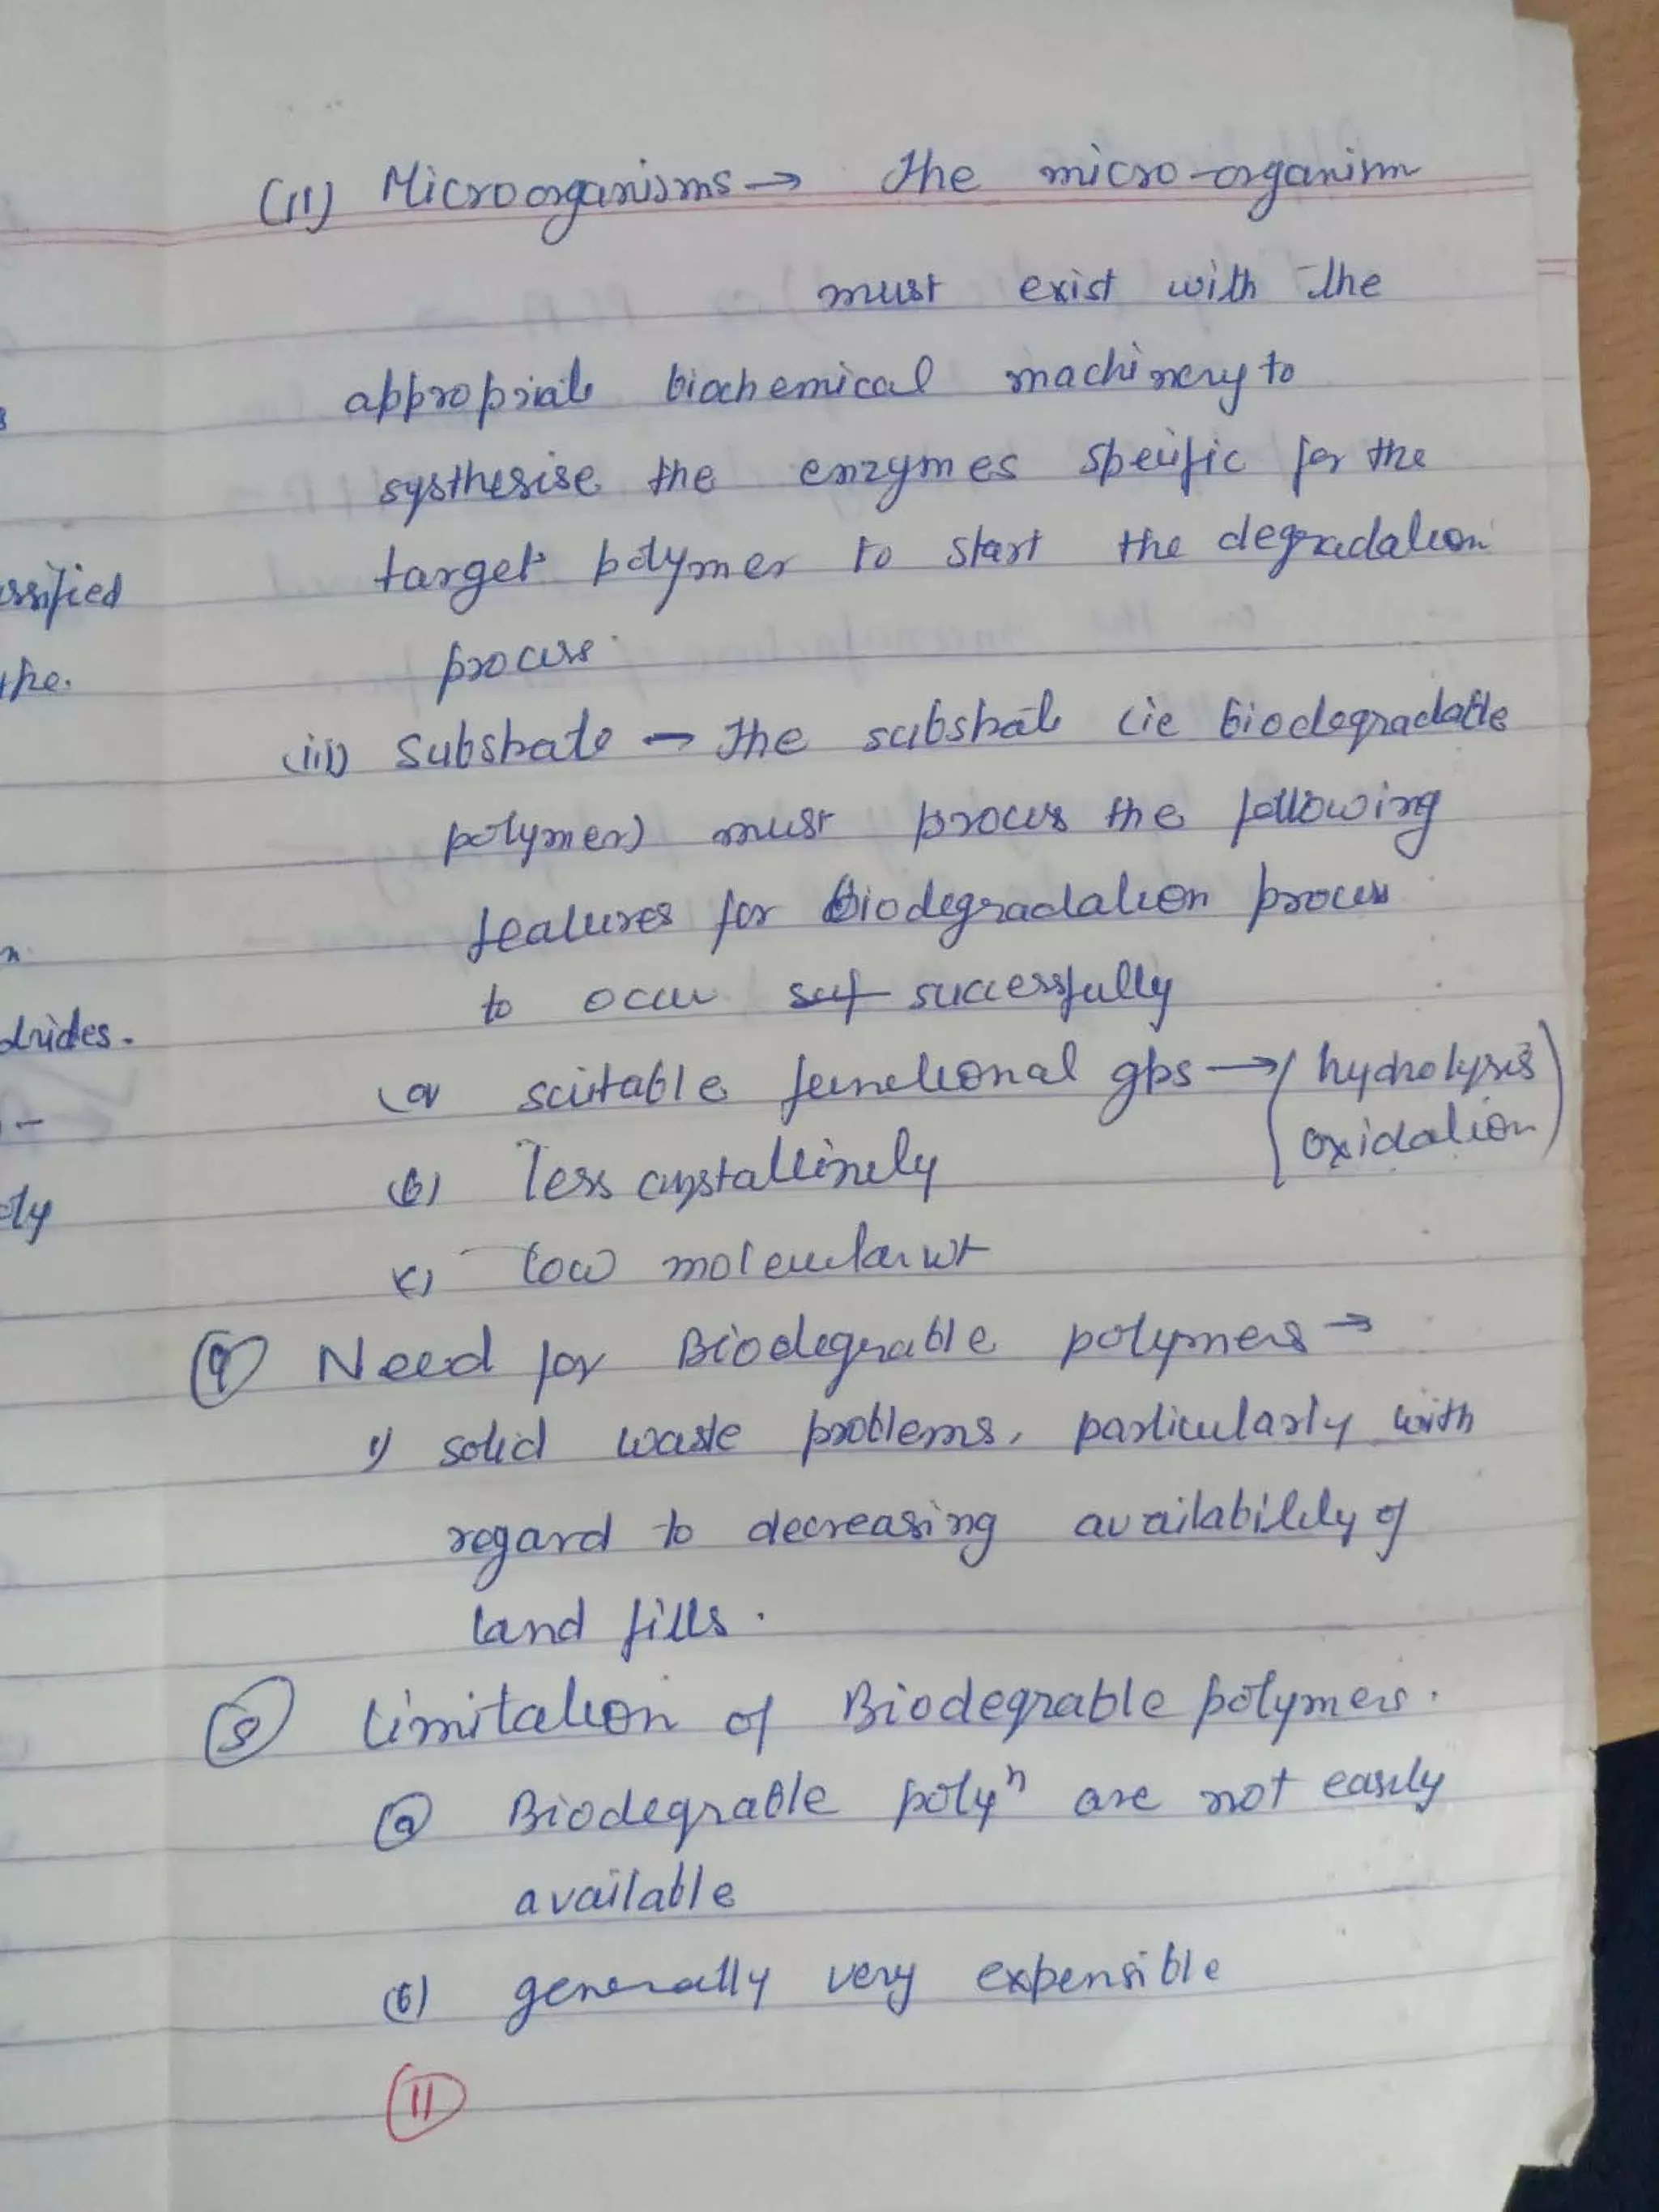 (ii) Microorganisms → The micro-organism
must exist with the
appropriate biochemical machinery to
systhesise the enzymes specific for the
target polymer to start the degradation
process.
(iii) Substrate → The substrate (ie biodegradable
polymer) must process the following
features for Biodegradation process
to occur suf successfully
(a) suitable functional gps → ( hydrolysis
oxidation )
(b) less crystallinely
(c) low molecular wt
④ Need for Biodegrable polymers →
1) solid waste problems, particularly with
regard to decreasing availability of
land fills.
⑤ Limitation of Biodegrable polymers.
ⓐ Biodegrable polyⁿ are not easily
available
(b) generally very expensible
⑪
ssified
the.
n.
drides.
-
oly